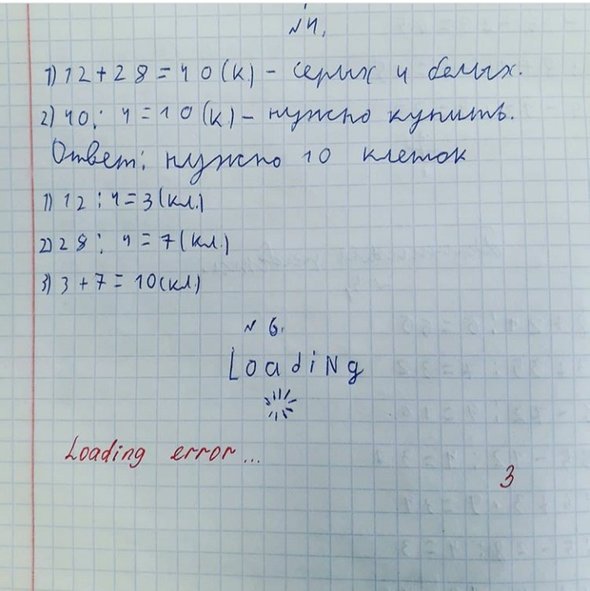 №4.
1) 12 + 28 = 40 (к) - серых и белых.
2) 40 : 4 = 10 (к) - нужно купить.
Ответ: нужно 10 клеток
1) 12 : 4 = 3 (кл.)
2) 28 : 4 = 7 (кл.)
3) 3 + 7 = 10 (кл)
№ 6.
LoadiNg
Loading error...
3